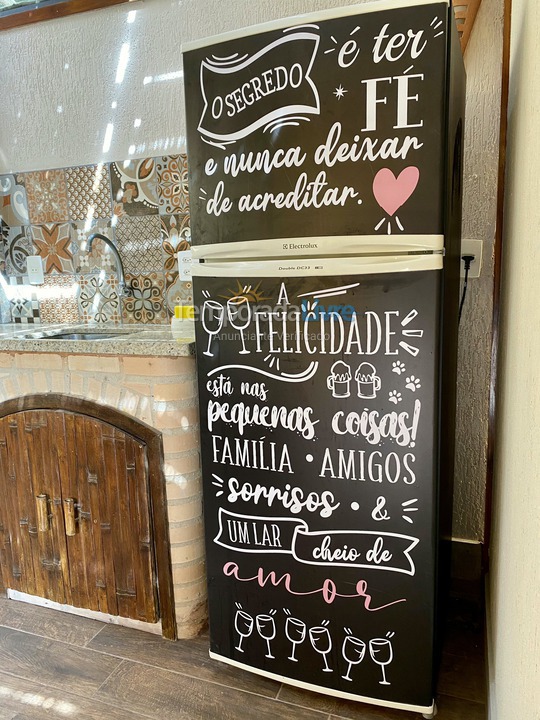 O SEGREDO
é ter
FÉ
e nunca deixar
de acreditar.
Electrolux
Double DC33
A
TemporadaLivre
Anunciante Verificado
FELICIDADE
está nas
pequenas coisas!
FAMÍLIA • AMIGOS
sorrisos • &
UM LAR cheio de
amor